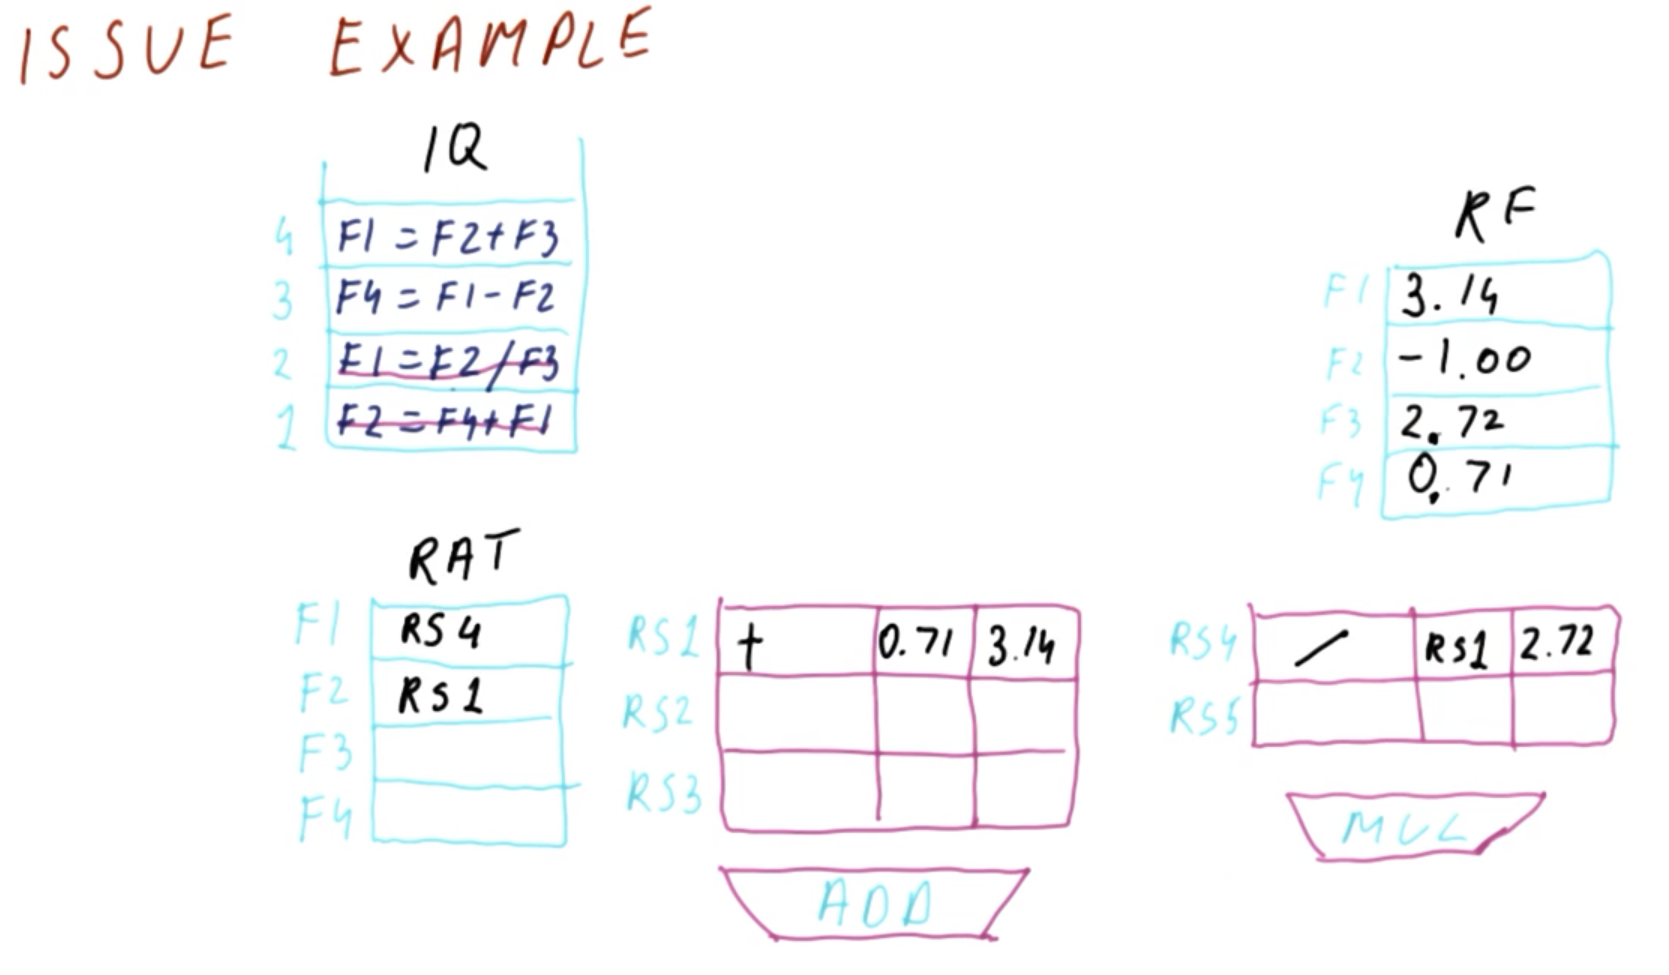 ISSUE EXAMPLE
IQ
4 F1 = F2 + F3
3 F4 = F1 - F2
2 F1 = F2 / F3
1 F2 = F4 + F1
RF
F1 3.14
F2 -1.00
F3 2.72
F4 0.71
RAT
F1 RS4
F2 RS1
F3
F4
RS1 + 0.71 3.14
RS2
RS3
ADD
RS4 / RS1 2.72
RS5
MUL